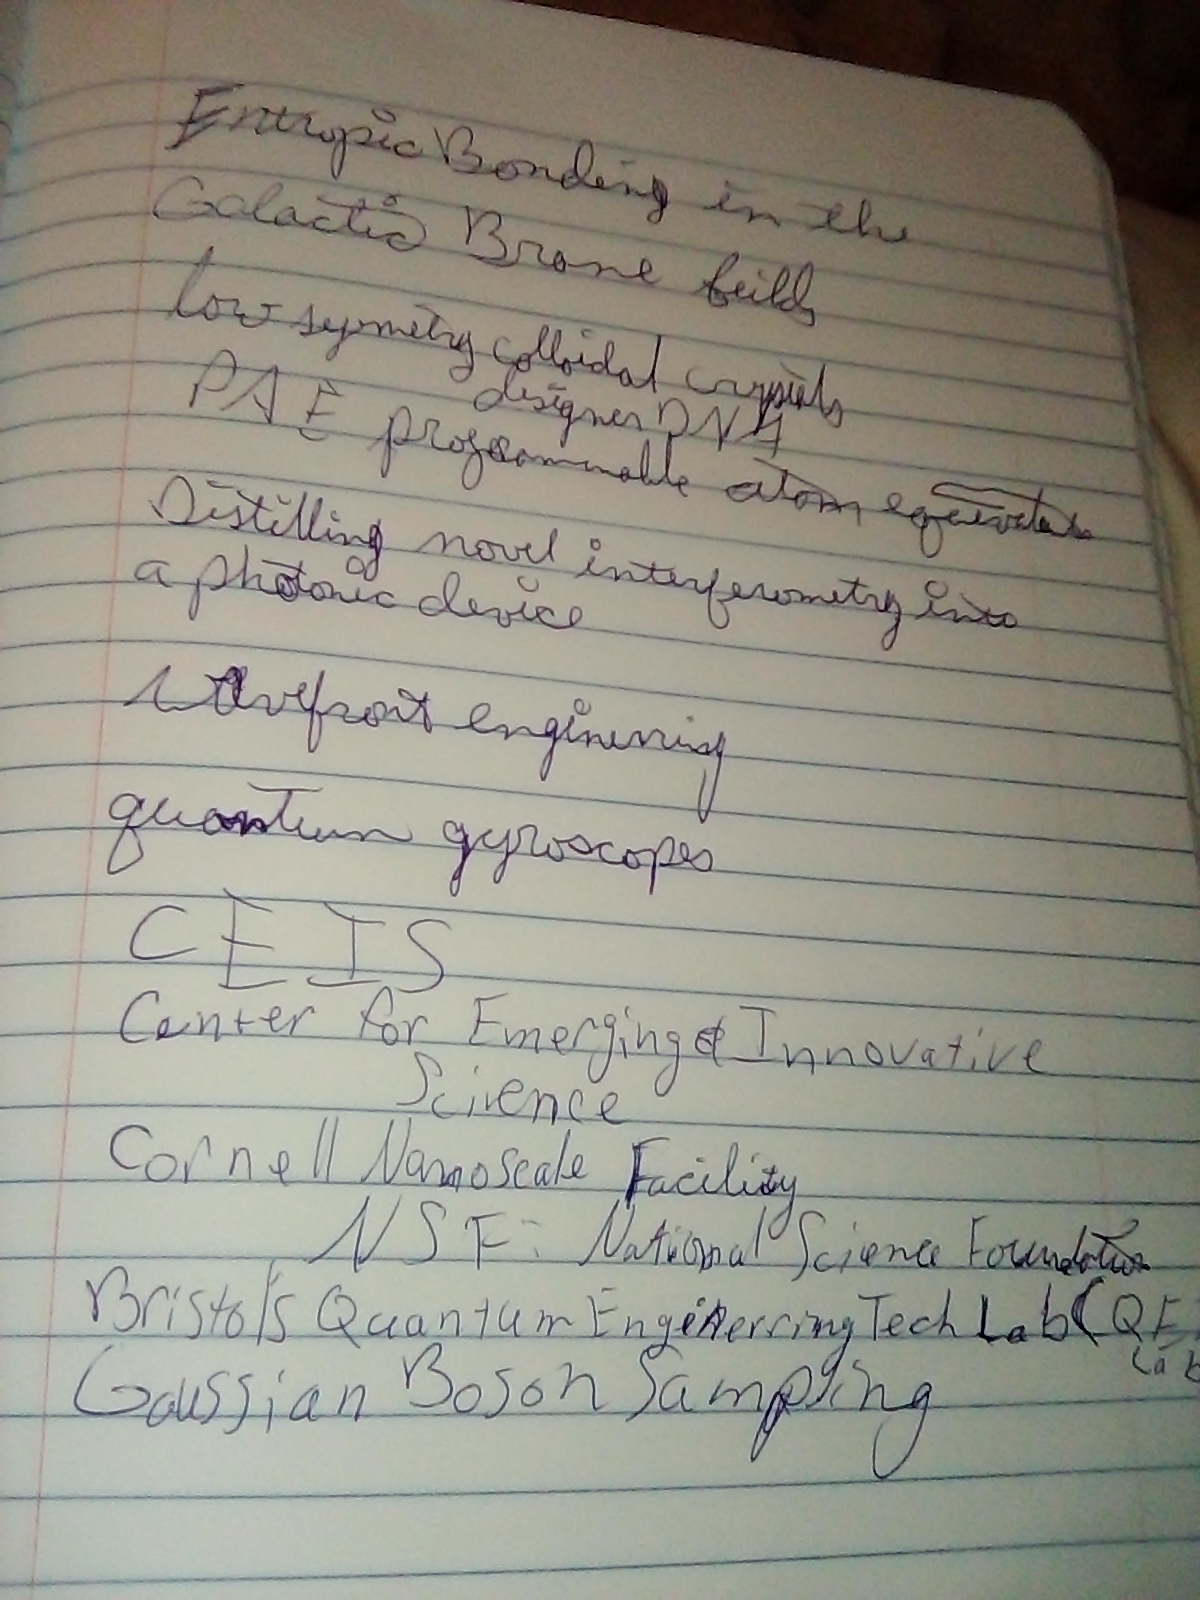 Entropic Bonding in the
Galactic Brane builds
low symetry colloidal crystals
designer DNA
PAE programmable atom equivalents
Distilling novel interferometry into
a photonic device
wavefront enginerring
quantum gyroscopes
CEIS
Center for Emerging & Innovative
Science
Cornell Nanoscale Facility
NSF: National Science Foundation
Bristol's Quantum Engineerring Tech Lab (QE
Lab
Gaussian Boson Sampling